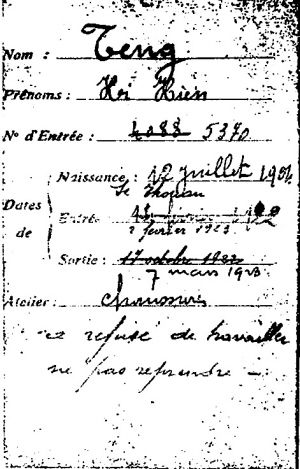 Nom : Teng
Prénoms : Hi Hien
N° d'Entrée : 4088 5370
Naissance : 12 juillet 1904
Dates
de
Entrée
2 fevrier 1923
Sortie : 17 octobre 1922
7 mars 1923
Atelier : Chaussures
refuse de travailler
ne pas reprendre —